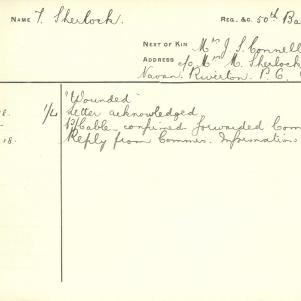 NAME T. Sherlock. REG. &C. 50th Ba
NEXT OF KIN Mrs J. S. Connell
ADDRESS c/o Mrs M. Sherlock
Navan, Riverton P.O.
"Wounded"
8. 1/4 Letter acknowledged
Cable confirmed forwarded Com
18. Reply from Commrs. Informations